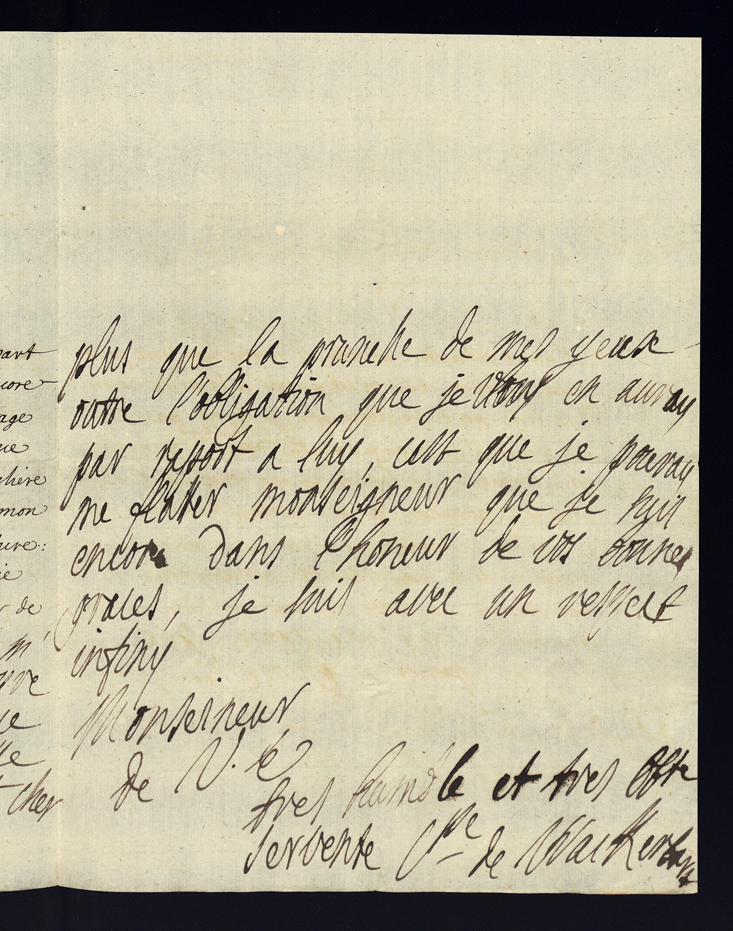 plus que la prunelle de mes yeux
outre l'obligation que je vous en auray
par raport a luy, cest que je pouray
me flater monseigneur que je suis
encore dans l'honeur de vos bonnes
graces, je suis avec un respect
infiny
Monseineur
de V. E
tres humble et tres obte
servente Css de Wackerbart
part
core
age
ue
lière
mon
ture:
ie
de
m,
ue
lle
cher